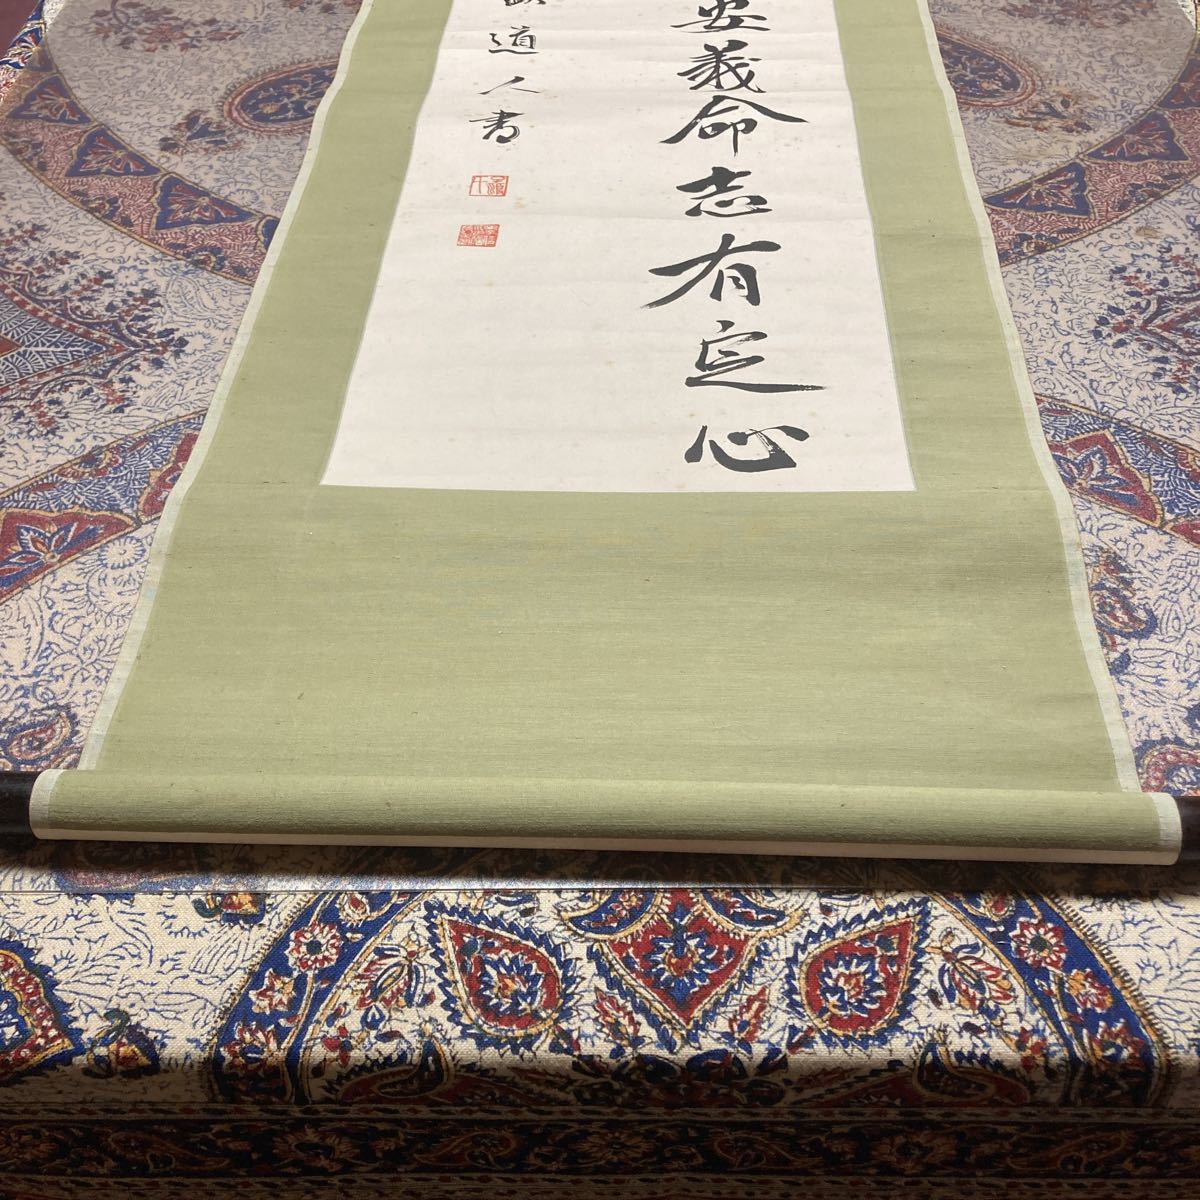 安義命志有定心
道人書